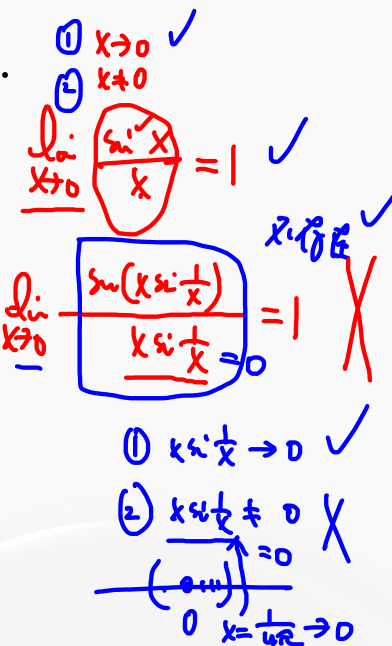 ① x→0 ✓
② x≠0
lim x→0 sin x / x = 1 ✓
lim x→0 sin(x sin 1/x) / x sin 1/x = 1 ✗
= 0
① x sin 1/x → 0 ✓
② x sin 1/x ≠ 0 ✗
= 0
0 x = 1/4π → 0